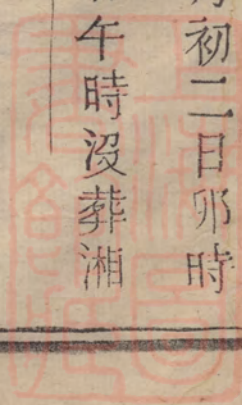 初二日卯時
午時没葬湘